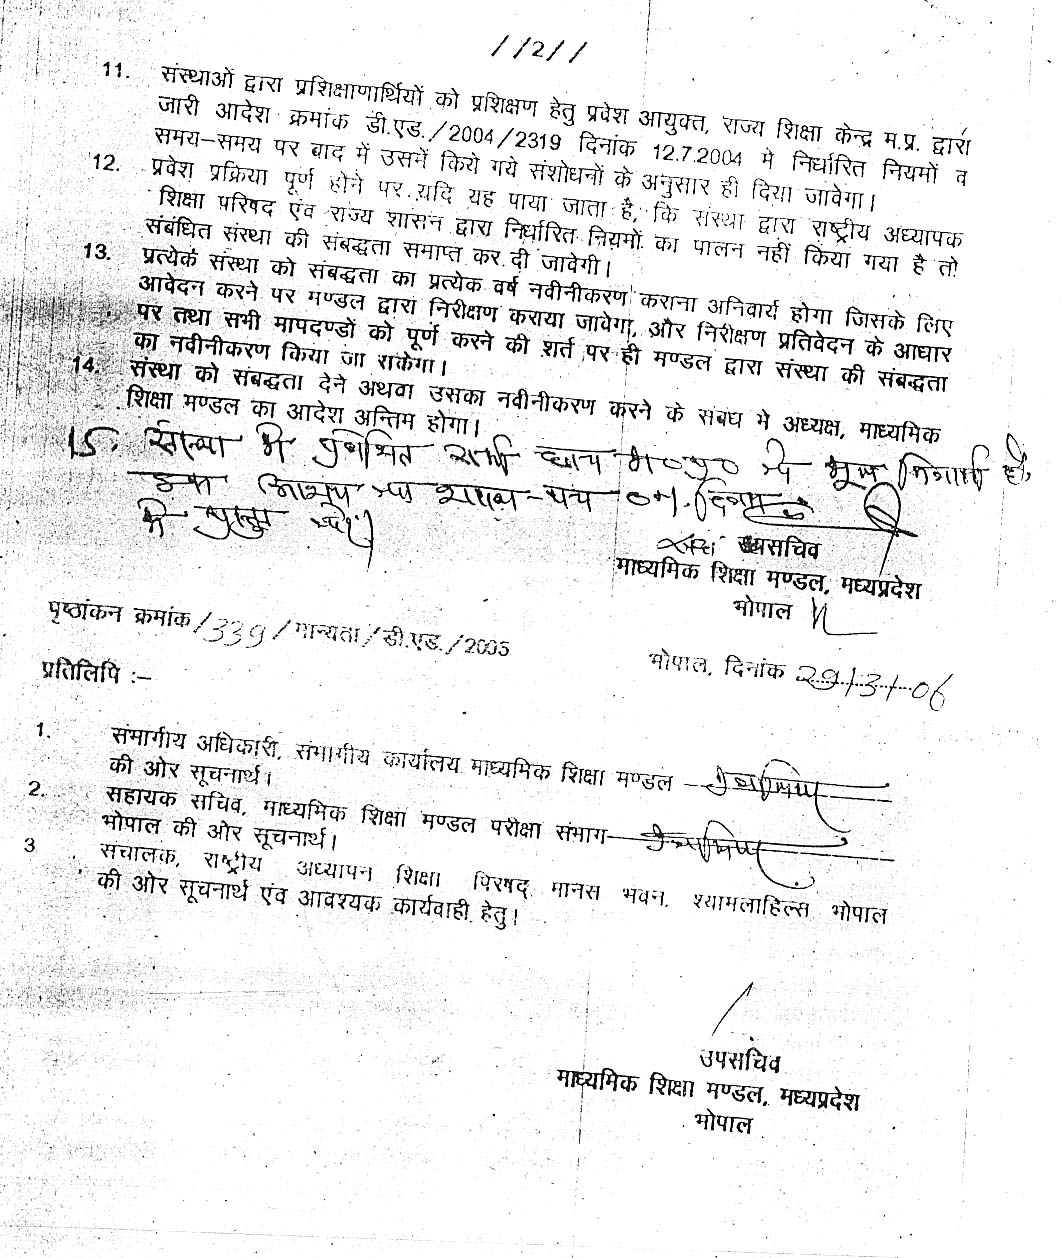 //2//
11. संस्थाओं द्वारा प्रशिक्षाणार्थियों को प्रशिक्षण हेतु प्रवेश आयुक्त, राज्य शिक्षा केन्द्र म.प्र. द्वारा
जारी आदेश क्रमांक डी.एड./2004/2319 दिनांक 12.7.2004 मे निर्धारित नियमों व
समय–समय पर बाद में उसमें किये गये संशोधनों के अनुसार ही दिया जावेगा।
12. प्रवेश प्रक्रिया पूर्ण होने पर यदि यह पाया जाता है, कि संस्था द्वारा राष्ट्रीय अध्यापक
शिक्षा परिषद एंव राज्य शासन द्वारा निर्धारित नियमों का पालन नहीं किया गया है तो
संबंधित संस्था की संबद्धता समाप्त कर दी जावेगी।
13. प्रत्येक संस्था को संबद्धता का प्रत्येक वर्ष नवीनीकरण कराना अनिवार्य होगा जिसके लिए
आवेदन करने पर मण्डल द्वारा निरीक्षण कराया जावेगा, और निरीक्षण प्रतिवेदन के आधार
पर तथा सभी मापदण्डों को पूर्ण करने की शर्त पर ही मण्डल द्वारा संस्था की संबद्धता
का नवीनीकरण किया जा सकेगा।
14. संस्था को संबद्धता देने अथवा उसका नवीनीकरण करने के संबध मे अध्यक्ष, माध्यमिक
शिक्षा मण्डल का आदेश अन्तिम होगा।
15. संस्था में प्रवेशित सभी छात्र म०प्र० के मूल निवासी हैं,
इस आशय का शपथ-पत्र
उपसचिव
माध्यमिक शिक्षा मण्डल, मध्यप्रदेश
भोपाल
पृष्ठांकन क्रमांक/339/मान्यता/डी.एड./2005
भोपाल, दिनांक 29/3/06
प्रतिलिपि :–
1. संमागीय अधिकारी, संभागीय कार्यालय माध्यमिक शिक्षा मण्डल –
की ओर सूचनार्थ।
2. सहायक सचिव, माध्यमिक शिक्षा मण्डल परीक्षा संभाग–
भोपाल की ओर सूचनार्थ।
3 संचालक, राष्ट्रीय अध्यापन शिक्षा परिषद मानस भवन, श्यामलाहिल्स भोपाल
की ओर सूचनार्थ एंव आवश्यक कार्यवाही हेतु।
उपसचिव
माध्यमिक शिक्षा मण्डल, मध्यप्रदेश
भोपाल